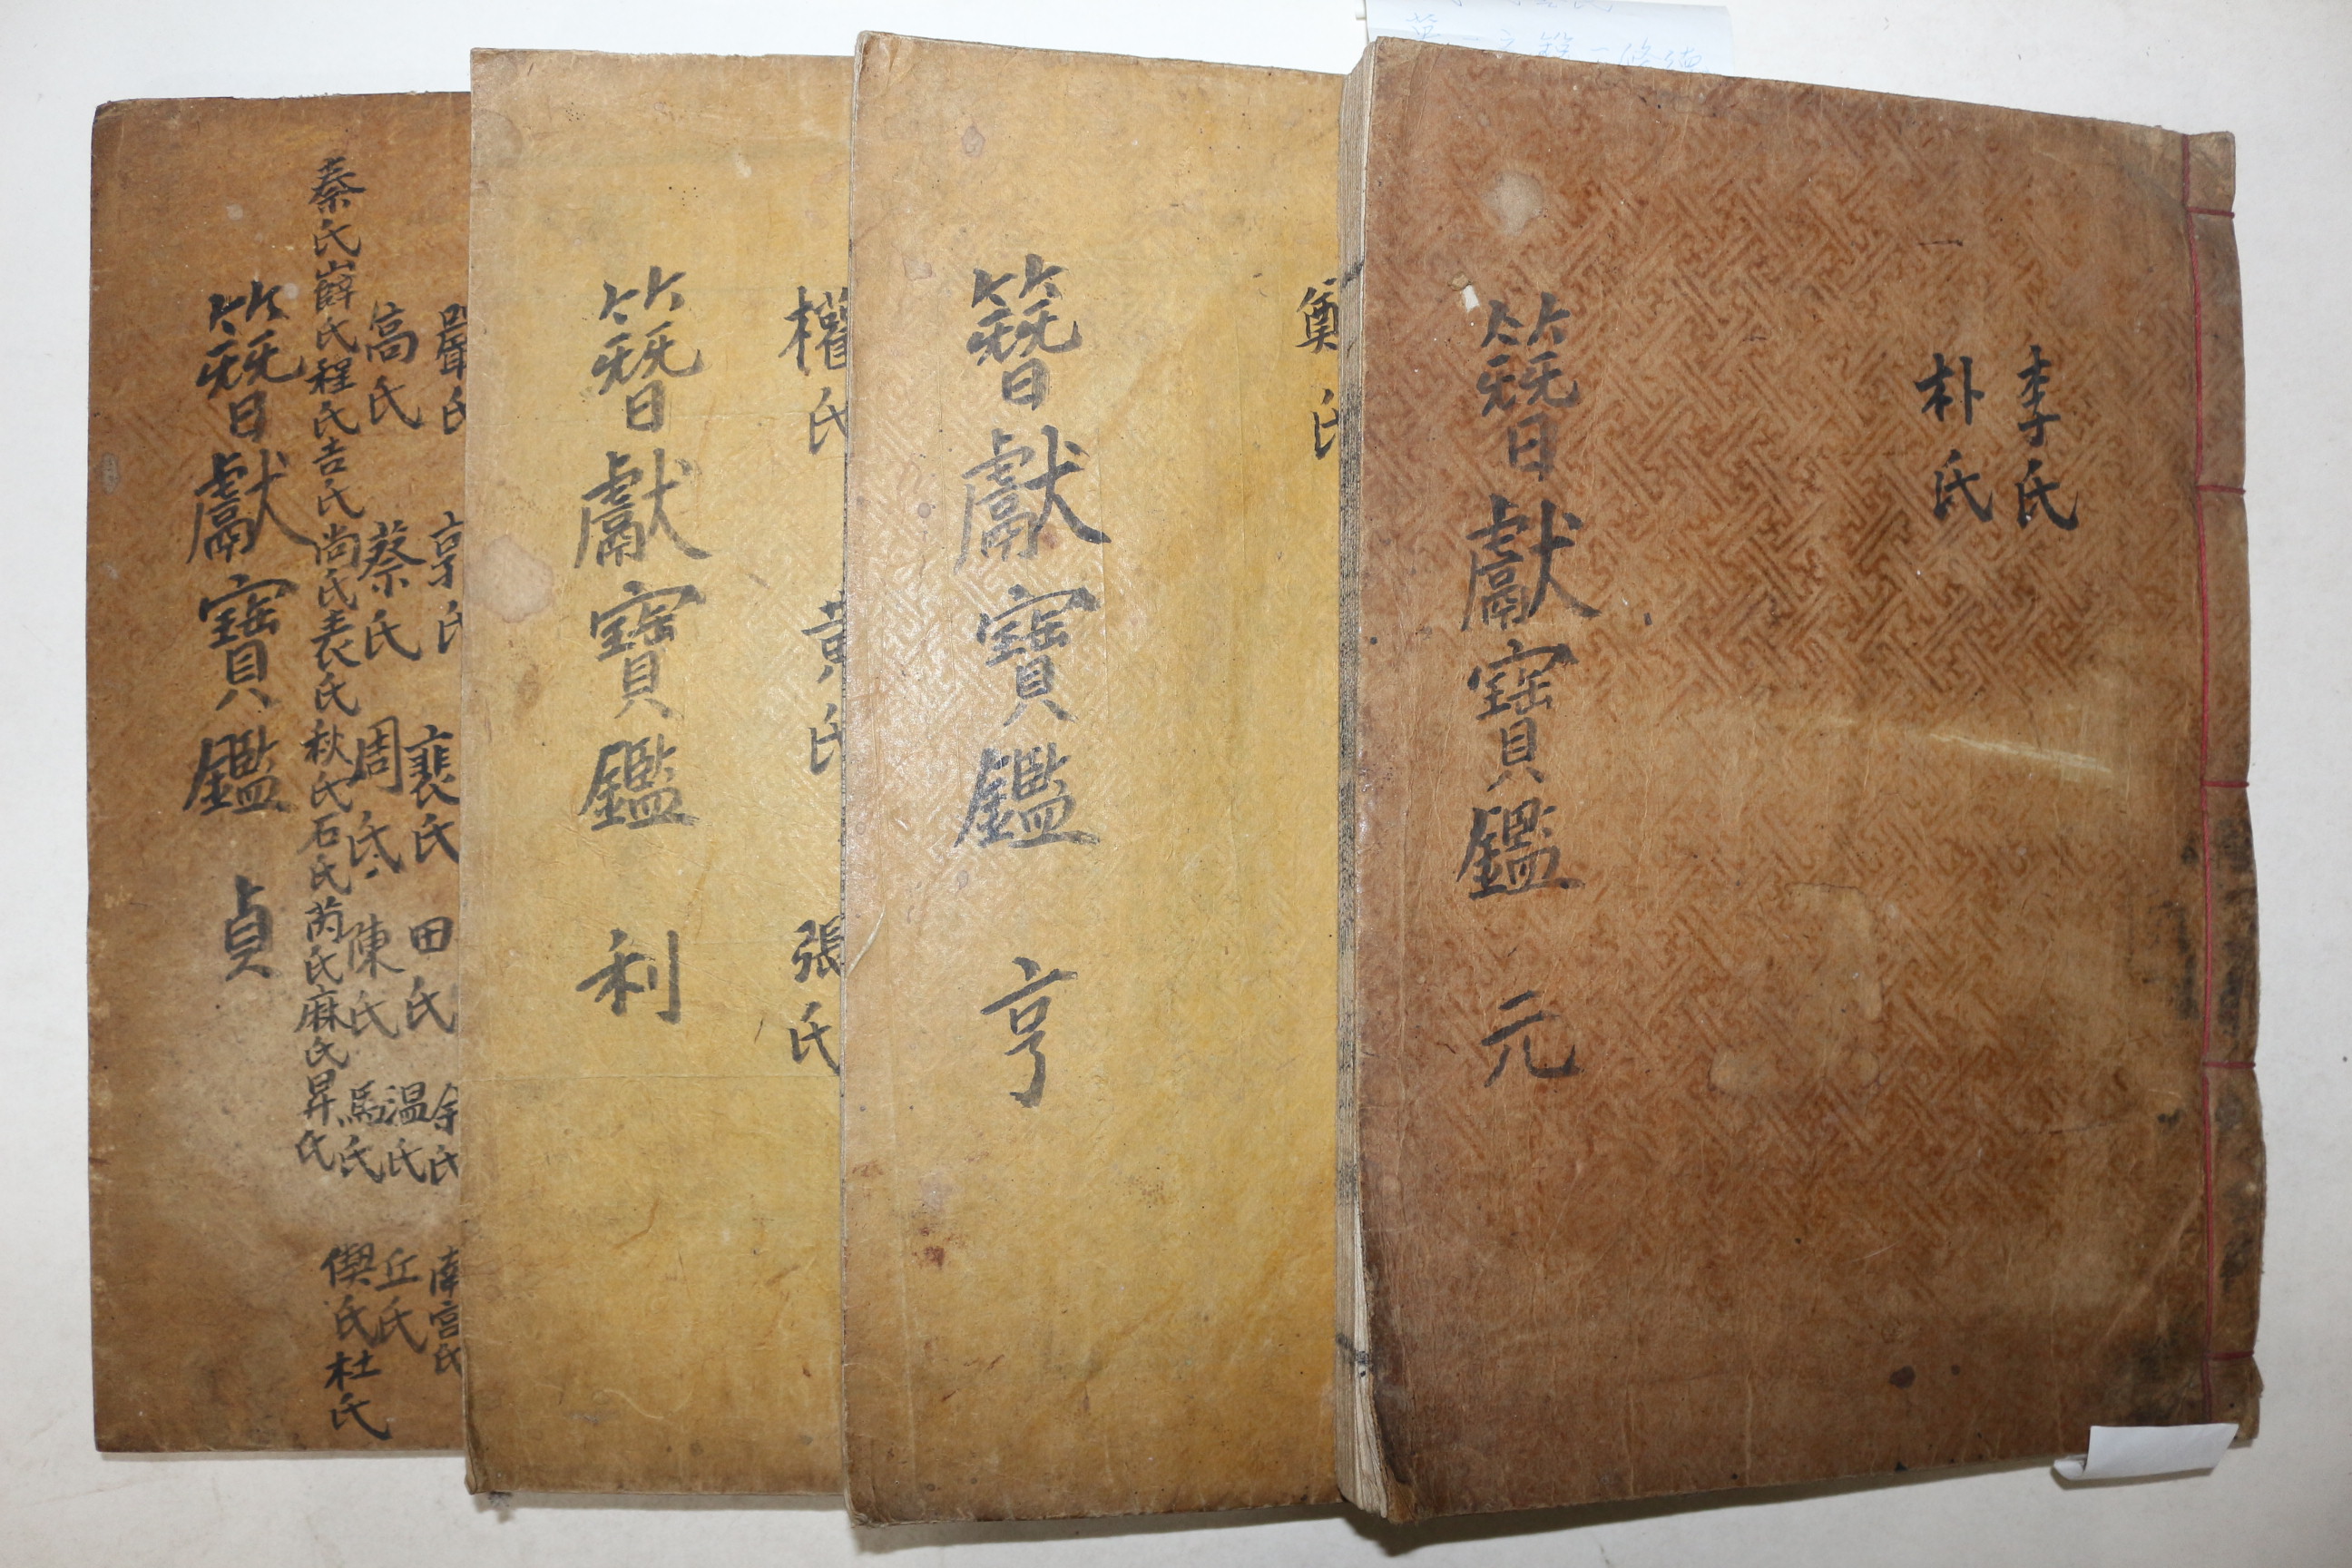 李氏
朴氏
簪獻寶鑑 元
鄭氏
簪獻寶鑑 亨
權氏 黃氏 張氏
簪獻寶鑑 利
裵氏 田氏
南宮氏
溫氏 丘氏
高氏 蔡氏 周氏 陳氏 馬氏 偰氏 杜氏
秦氏 薛氏 程氏 吉氏 尚氏 表氏 秋氏 石氏 芮氏 麻氏 昇氏
簪獻寶鑑 貞